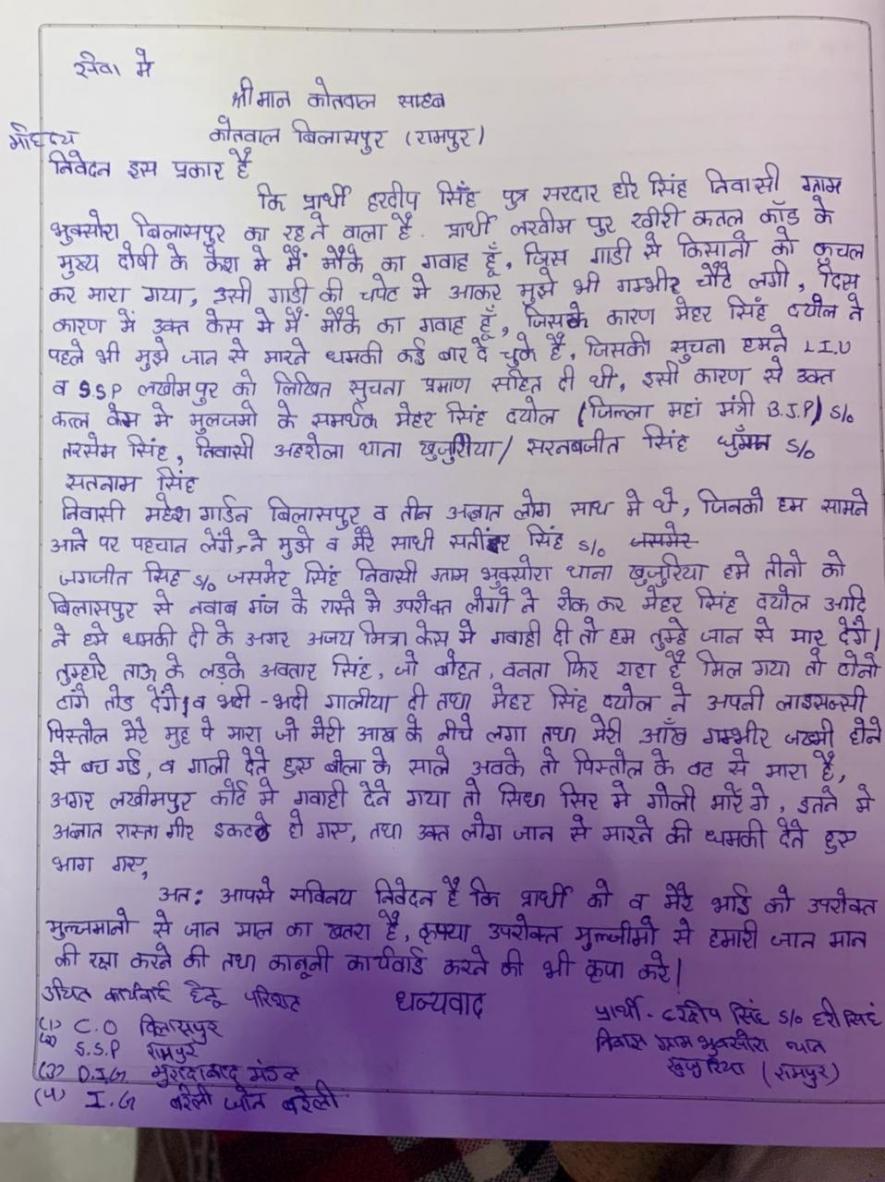 सेवा मे
श्रीमान कोतवाल साहब
कोतवाल बिलासपुर (रामपुर)
निवेदन इस प्रकार है
कि प्रार्थी हरदीप सिंह पुत्र सरदार हरि सिंह निवासी ग्राम
भुक्सोरा बिलासपुर का रहने वाला है. प्रार्थी लखीम पुर खीरी कतल कॉड के
मुख्य दोषी के केश मे मैं मौके का गवाह हूँ, जिस गाडी से किसानो को कुचल
कर मारा गया, उसी गाडी की चपेट मे आकर मुझे भी गम्भीर चौटे लगी, दिस
कारण में उक्त केस मे मैं मौके का गवाह हूँ, जिसके कारण मेहर सिंह दयोल ने
पहले भी मुझे जान से मारने धमकी कई बार दे चुके है, जिसकी सुचना हमने L.I.U
व S.S.P लखीमपुर को लिखित सुचना प्रमाण सहित दी थी, इसी कारण से उक्त
कत्ल केस मे मुलजमो के समर्थक मेहर सिंह दयोल (जिल्ला महां मंत्री B.J.P) S/o
तरसेम सिंह, निवासी अहरोला थाना खुजुरिया/ सरनबजीत सिंह S/o
सतनाम सिंह
निवासी महेश गार्डन बिलासपुर व तीन अज्ञात लोग साथ मे थे, जिनको हम सामने
आने पर पहचान लेंगे, ने मुझे व मेरे साथी सिंह S/o जसमेर
जगजीत सिह S/o जसमेर सिंह निवासी ग्राम भुक्सोरा थाना खुजुरिया हमे तीनो को
बिलासपुर से नवाब गंज के रास्ते मे उपरोक्त लोगों ने रोक कर मेहर सिंह दयोल आदि
ने हमे धमकी दी के अगर अजय मिश्रा केस मे गवाही दी तो हम तुम्हे जान से मार देगे|
तुम्हारे ताऊ के लड़के अवतार सिंह, जो बोहत, वनता फिर राहा है मिल गया तो दोनो
टांगे तोड देगे, व भद्दी-भद्दी गालीया दी तथा मेहर सिंह दयोल ने अपनी लाइसन्सी
पिस्तोल मेरे मुह पे मारा जो मेरी आख के नीचे लगा तथा मेरी आँख गम्भीर जख्मी होने
से बच गई, व गाली देते हुए बोला के साले अवके तो पिस्तोल के वट से मारा है,
अगर लखीमपुर कोर्ट मे गवाही देने गया तो सिधा सिर मे गोली मारेंगे, इतने मे
अज्ञात रास्ता गीर इकटठे हो गए, तथा उक्त लोग जान से मारने की धमकी देते हुए
भाग गए,
अत: आपसे सविनय निवेदन है कि प्रार्थी को व मेरे भाई को उपरोक्त
मुल्जमानो से जान माल का खतरा है, कृपया उपरोक्त मुल्जीमो से हमारी जान माल
की रक्षा करने की तथा कानूनी कार्यवाई करने की भी कृपा करे|
उचित कार्यवाई हेतू धन्यवाद
प्रार्थी- हरदीप सिंह S/o हरी सिंह
निवास ग्राम भुक्सोरा थाना
खुजुरिया (रामपुर)
(1) C.O बिलासपुर
(2) S.S.P रामपुर
(3) D.I.G मुरादाबाद मंडल
(4) I.G बरेली जोन बरेली